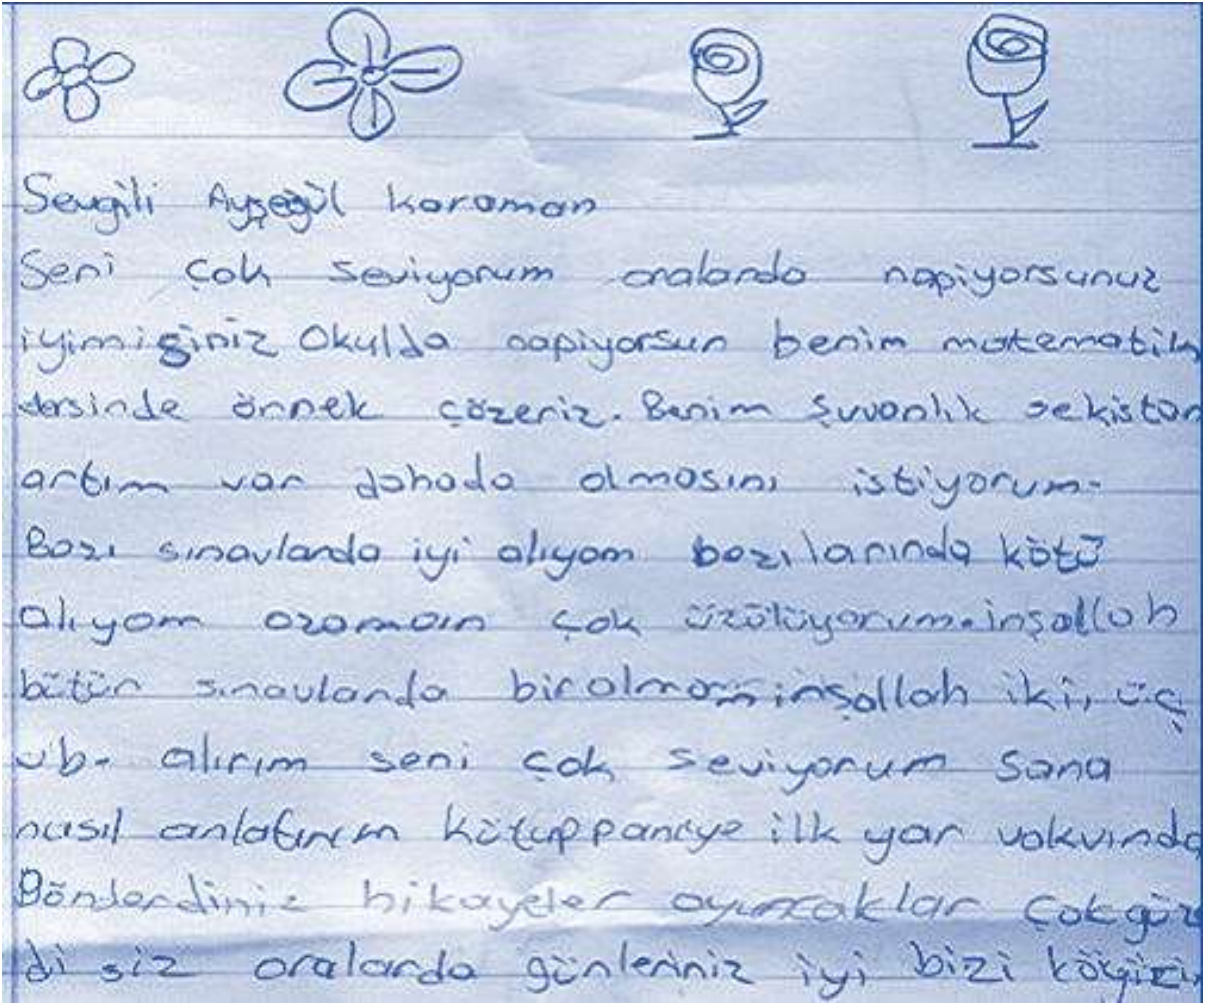 Sevgili Ayşegül karaman
Seni çok seviyorum oralarda napiyorsunuz
iyimisiniz Okulda napiyorsun benim matematik
dersinde örnek çözeriz. Benim şuvanlık sekistan
artım var dahada olmasını istiyorum.
Bazı sınavlarda iyi alıyom bazılarında kötü
alıyom ozaman çok üzülüyorum. inşallah
bütün sınavlarda bir almam inşallah iki, üç
vb. alırım seni çok seviyorum sana
nasıl anlatırım kütüppaneye ilk yar vakvında
Gönderdiniz hikayeler oyuncaklar çok güze
di siz oralarda günleriniz iyi bizi